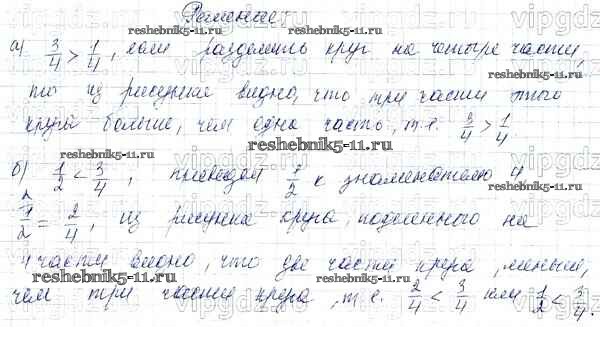 Решение:
а) 3/4 > 1/4, если разделить круг на четыре части,
то из рисунка видно, что три части этого
круга больше, чем одна часть, т.е. 3/4 > 1/4.
б) 1/2 < 3/4, приведем 1/2 к знаменателю 4
1/2 = 2/4, из рисунка круга, поделенного на
4 части видно, что две части круга, меньше,
чем три части круга, т.е. 2/4 < 3/4 или 1/2 < 3/4.
reshebnik5-11.ru
reshebnik5-11.ru
reshebnik5-11.ru
reshebnik5-11.ru
reshebnik5-11.ru
reshebnik5-11.ru
vipgdz